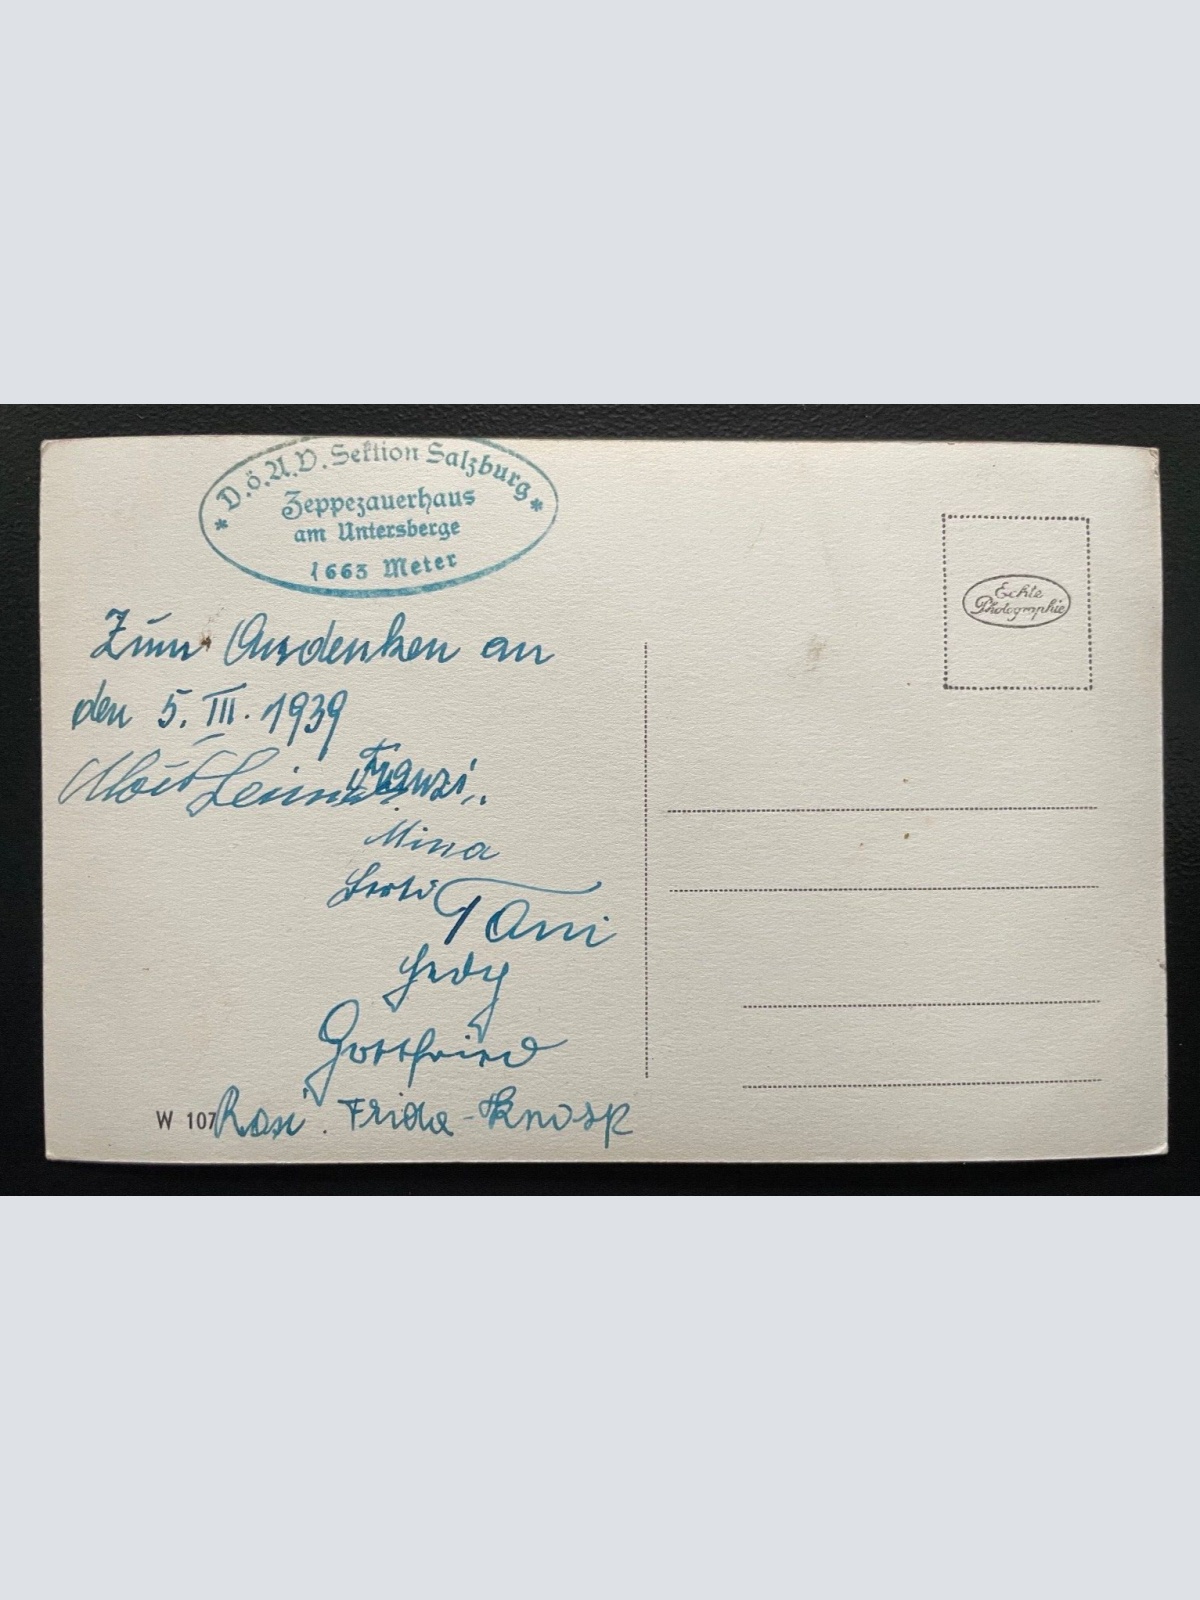 * D.ö.A.V. Sektion Salzburg *
Zeppezauerhaus
am Untersberge
1663 Meter
Echte
Photographie
Zum Andenken an
den 5. III. 1939
Alois Franzi
Mina
Toni
Hedy
Gottfried
W 107 Rosi. Frida - Knosp